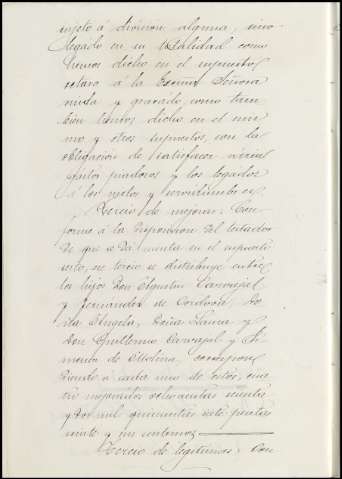 sujeto á division alguna, sino
legado en su totalidad como
hemos dicho en el supuesto
octavo á la Excma Señora
viuda y gravado, como tam
bién hemos dicho en el mis
mo y otros supuestos, con la
obligación de satisfacer
piadosos y los legados
á los nietos y servidumbre.
Tercio de mejora: Con
forme á la disposicion del testador
de que se da cuenta en el supuesto
este tercio se distribuye entre
los hijos Don Agustin Carvajal
y Fernández de Cordova, Do
ña Angela, Doña Maria y
Don Guillermo Carvajal y Ji
menez de Molina, correspon
diendo á cada uno de estos,
y dos mil quinientas siete pesetas
veinte y un centimos.
Tercio de legitimas: Con